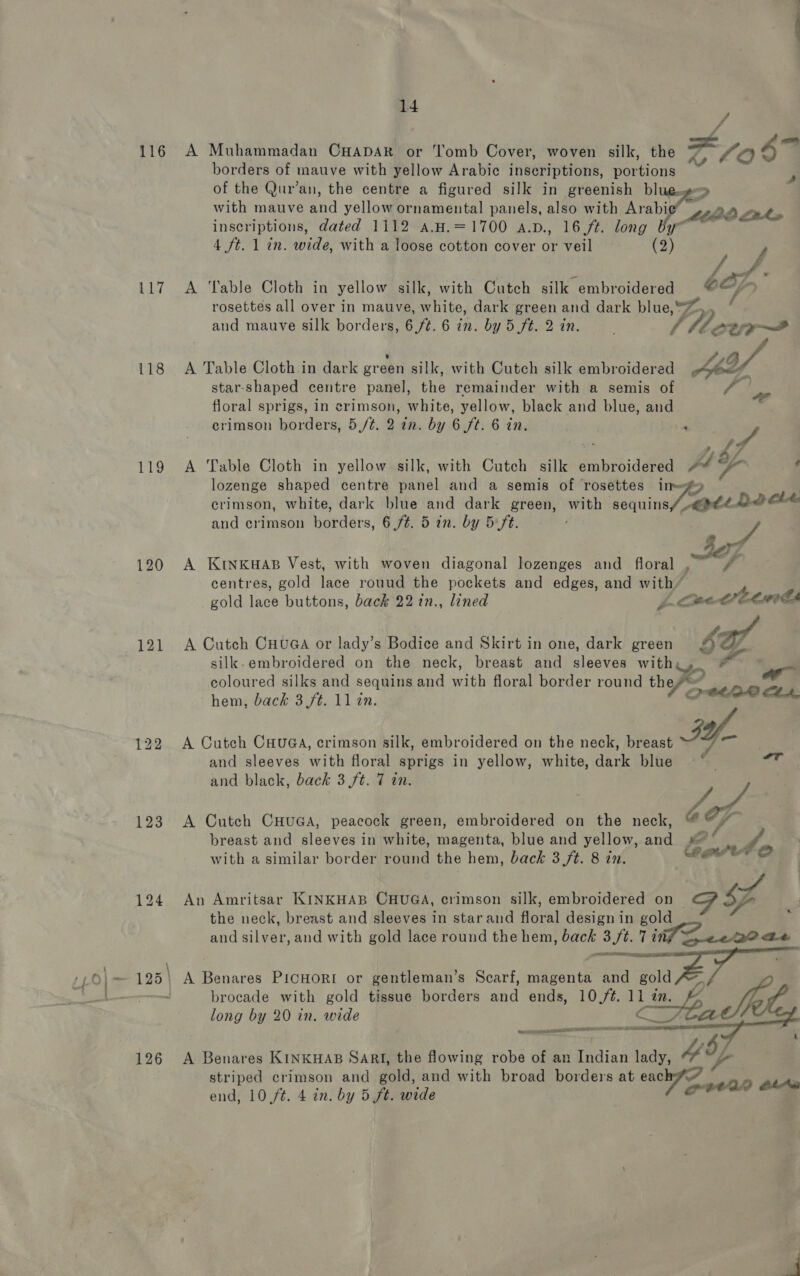 14
116 A Muhammadan CHADAR or Tomb Cover, woven silk, the
borders of mauve with yellow Arabic inscriptions, portions
of the Qur'an, the centre a figured silk in greenish blue
with mauve and yellow ornamental panels, also with Arabic
inscriptions, dated 1112 A.H. = 1700 A.D., 16 ft. long by
4 ft. 1 in. wide, with a loose cotton cover or veil (2)
117 A Table Cloth in yellow silk, with Cutch silk embroidered
rosettes all over in mauve, white, dark green and dark blue,
and mauve silk borders, 6 ft. 6 in. by 5 ft. 2 in.
118 A Table Cloth in dark green silk, with Cutch silk embroidered
star-shaped centre panel, the remainder with a semis of
floral sprigs, in crimson, white, yellow, black and blue, and
crimson borders, 5 ft. 2 in. by 6 ft. 6 in.
119 A Table Cloth in yellow silk, with Cutch silk embroidered
lozenge shaped centre panel and a semis of rosettes in
crimson, white, dark blue and dark green, with sequins,
and crimson borders, 6 ft. 5 in. by 5 ft.
120 A KINKHAB Vest, with woven diagonal lozenges and floral
centres, gold lace rouud the pockets and edges, and with
gold lace buttons, back 22 in., lined
121 A Cutch CHUGA or lady's Bodice and Skirt in one, dark green
silk embroidered on the neck, breast and sleeves with
coloured silks and sequins and with floral border round the
hem, back 3 ft. 11 in.
122 A Cutch CHUGA, crimson silk, embroidered on the neck, breast
and sleeves with floral sprigs in yellow, white, dark blue
and black, back 3 ft. 7 in.
123 A Cutch CHUGA, peacock green, embroidered on the neck,
breast and sleeves in white, magenta, blue and yellow, and
with a similar border round the hem, back 3 ft. 8 in.
124 An Amritsar KINKHAB CHUGA, crimson silk, embroidered on
the neck, breast and sleeves in star and floral design in gold
and silver, and with gold lace round the hem, back 3 ft. 7 in.
125 A Benares PICHORI or gentleman's Scarf, magenta and gold
brocade with gold tissue borders and ends, 10 ft. 11 in.
long by 20 in. wide
126 A Benares KINKHAB SARI, the flowing robe of an Indian lady,
striped crimson and gold, and with broad borders at each
end, 10 ft. 4 in. by 5 ft. wide